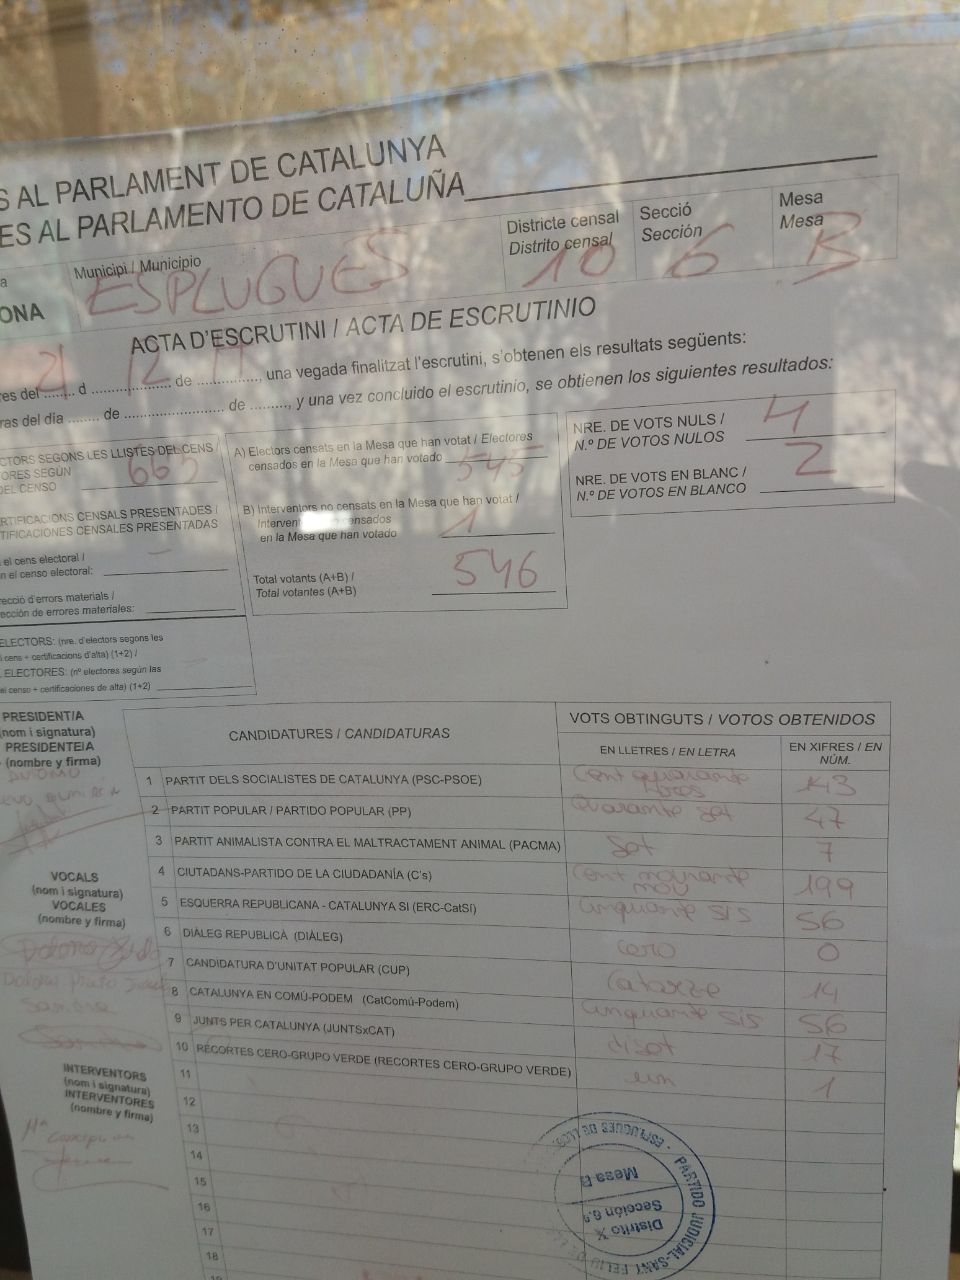 S AL PARLAMENT DE CATALUNYA
ES AL PARLAMENTO DE CATALUÑA
a
ONA
Municipi / Municipio
ESPLUGUES
Districte censal
Distrito censal
10
Secció
Sección
6
Mesa
Mesa
B
ACTA D'ESCRUTINI / ACTA DE ESCRUTINIO
res del 21 d 12 de 17, una vegada finalitzat l'escrutini, s'obtenen els resultats següents:
ras del día ........ de ........................ de ........., y una vez concluido el escrutinio, se obtienen los siguientes resultados:
CTORS SEGONS LES LLISTES DEL CENS /
ORES SEGÚN
DEL CENSO 665
RTIFICACIONS CENSALS PRESENTADES /
TIFICACIONES CENSALES PRESENTADAS
el cens electoral /
n el censo electoral: —
recció d'errors materials /
ección de errores materiales:
ELECTORS: (nre. d'electors segons les
l cens + certificacions d'alta) (1+2) /
ELECTORES: (nº electores según las
el censo + certificaciones de alta) (1+2)
A) Electors censats en la Mesa que han votat / Electores
censados en la Mesa que han votado 545
B) Interventors no censats en la Mesa que han votat /
censados
en la Mesa que han votado 1
Total votants (A+B) /
Total votantes (A+B) 546
NRE. DE VOTS NULS /
N.º DE VOTOS NULOS 4
NRE. DE VOTS EN BLANC /
N.º DE VOTOS EN BLANCO 2
PRESIDENT/A
(nom i signatura)
PRESIDENTE/A
(nombre y firma)
VOCALS
(nom i signatura)
VOCALES
(nombre y firma)
Dolores
INTERVENTORS
(nom i signatura)
INTERVENTORES
(nombre y firma)
Mª
CANDIDATURES / CANDIDATURAS
VOTS OBTINGUTS / VOTOS OBTENIDOS
EN LLETRES / EN LETRA
EN XIFRES / EN NÚM.
1 PARTIT DELS SOCIALISTES DE CATALUNYA (PSC-PSOE) Cent quarante 143
2 PARTIT POPULAR / PARTIDO POPULAR (PP) Quarante set 47
3 PARTIT ANIMALISTA CONTRA EL MALTRACTAMENT ANIMAL (PACMA) Set 7
4 CIUTADANS-PARTIDO DE LA CIUDADANÍA (C's) Cent nourante nou 199
5 ESQUERRA REPUBLICANA - CATALUNYA SÍ (ERC-CatSí) Cinquante sis 56
6 DIÀLEG REPUBLICÀ (DIÀLEG) cero 0
7 CANDIDATURA D'UNITAT POPULAR (CUP) Catorze 14
8 CATALUNYA EN COMÚ-PODEM (CatComú-Podem) Cinquante sis 56
9 JUNTS PER CATALUNYA (JUNTSxCAT) diset 17
10 RECORTES CERO-GRUPO VERDE (RECORTES CERO-GRUPO VERDE) un 1
11
12
13
14
15
16
17
18
19
PARTIDO JUDICIAL-SANT FELIU DE
ESPLUGUES DE
Distrito X
Sección 6.ª
Mesa B